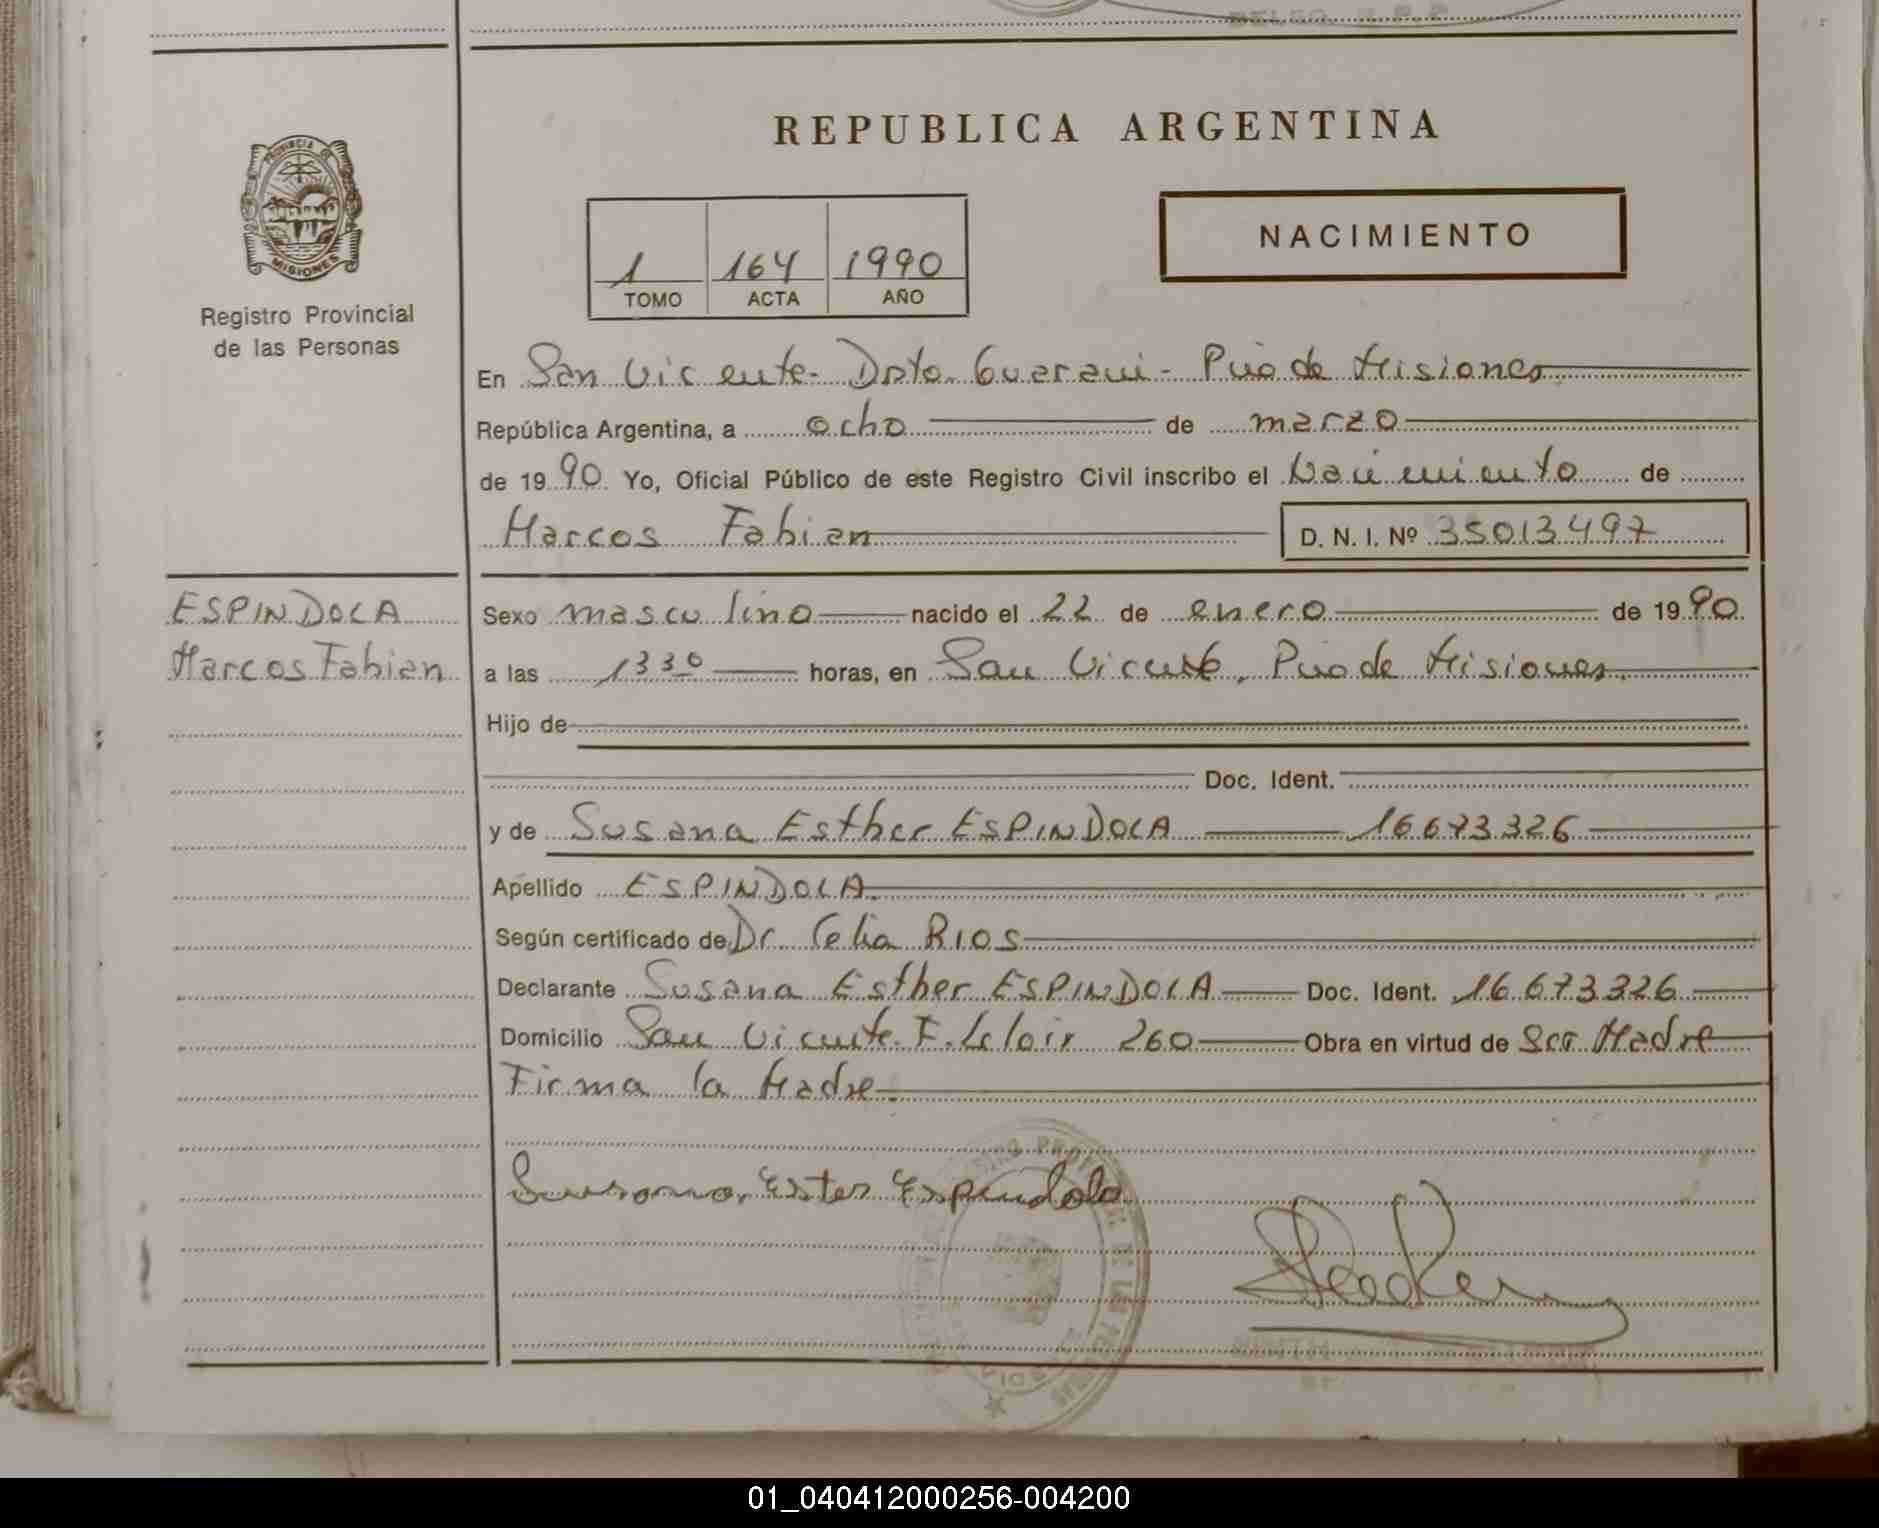 REPUBLICA ARGENTINA
PROVINCIA DE
MISIONES
Registro Provincial
de las Personas
1 164 1990
TOMO ACTA AÑO
NACIMIENTO
En San Vicente - Dpto. Guarani - Pcia de Misiones
República Argentina, a ocho de marzo
de 1990 Yo, Oficial Público de este Registro Civil inscribo el Nacimiento de
Marcos Fabian D. N. I. Nº 35013497
ESPINDOLA
Marcos Fabian
Sexo masculino nacido el 22 de enero de 1990
a las 1330 horas, en San Vicente, Pcia de Misiones.
Hijo de
Doc. Ident.
y de Susana Esther ESPINDOLA 16673326
Apellido ESPINDOLA.
Según certificado de Dr. Celia RIOS
Declarante Susana Esther ESPINDOLA Doc. Ident. 16.673.326
Domicilio San Vicente. F. Leloir 260 Obra en virtud de Ser Madre
Firma la Madre.
Susana Ester Espindola
01_040412000256-004200